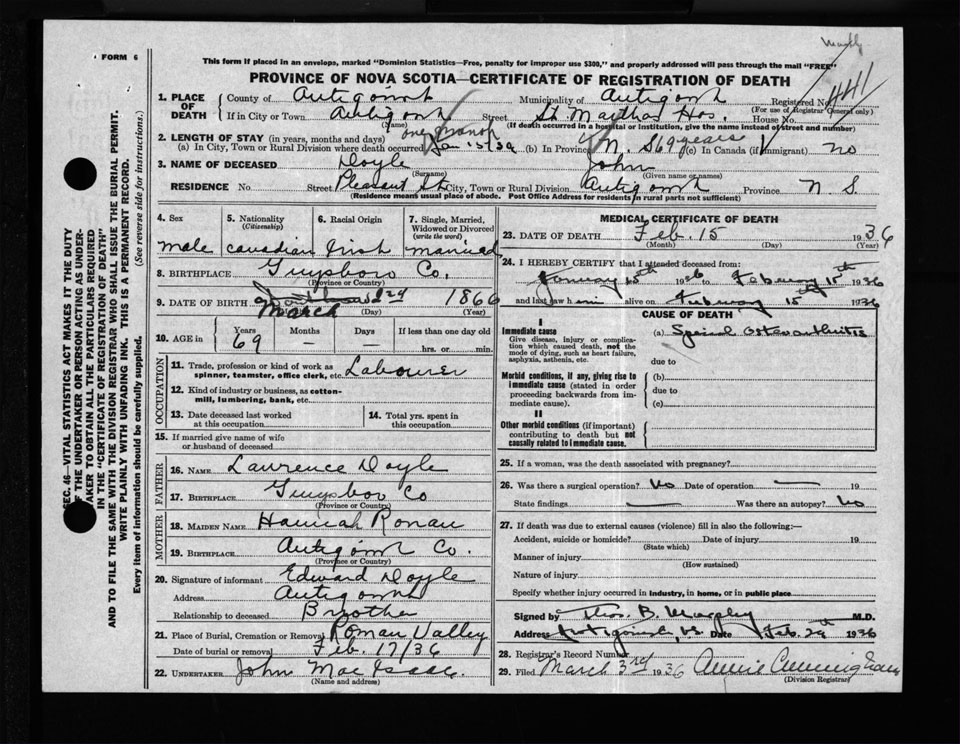 FORM 6
This form if placed in an envelope, marked "Dominion Statistics—Free, penalty for improper use $300," and properly addressed will pass through the mail "FREE"
PROVINCE OF NOVA SCOTIA—CERTIFICATE OF REGISTRATION OF DEATH
441
1. PLACE OF DEATH County of Antigonish Municipality of Antigonish Registered No.
(For use of Registrar General only)
If in City or Town Antigonish Street St. Marthas Hos. House No.
(Name) (If death occurred in a hospital or institution, give the name instead of street and number)
2. LENGTH OF STAY (in years, months and days) one month
(a) In City, Town or Rural Division where death occurred Jan 15/36 (b) In Province N. S 69 years (c) In Canada (if immigrant) no
3. NAME OF DECEASED Doyle John
(Surname) (Given name or names)
RESIDENCE No. Street Pleasant St City, Town or Rural Division Antigonish Province N. S.
(Residence means usual place of abode. Post Office Address for residents in rural parts not sufficient)
4. Sex 5. Nationality (Citizenship) 6. Racial Origin 7. Single, Married, Widowed or Divorced (write the word)
male Canadian Irish married
8. BIRTHPLACE Guysboro Co.
(Province or Country)
9. DATE OF BIRTH March 1866
(Day) (Year)
10. AGE in Years Months Days If less than one day old
69 — — hrs. or min.
OCCUPATION
11. Trade, profession or kind of work as spinner, teamster, office clerk, etc. Labourer
12. Kind of industry or business, as cotton-mill, lumbering, bank, etc.
13. Date deceased last worked at this occupation
14. Total yrs. spent in this occupation
15. If married give name of wife or husband of deceased
FATHER
16. NAME Lawrence Doyle
17. BIRTHPLACE Guysboro Co
(Province or Country)
MOTHER
18. MAIDEN NAME Hannah Ronan
19. BIRTHPLACE Antigonish Co.
(Province or Country)
20. Signature of informant Edward Doyle
Address Antigonish
Relationship to deceased Brother
21. Place of Burial, Cremation or Removal Roman Valley
Date of burial or removal Feb. 17/36
22. UNDERTAKER John MacIsaac.
(Name and address)
MEDICAL CERTIFICATE OF DEATH
23. DATE OF DEATH Feb. 15 1936
(Month) (Day) (Year)
24. I HEREBY CERTIFY that I attended deceased from:
January 15th 1936 to February 15th 1936
and last saw him alive on February 15th 1936
CAUSE OF DEATH
I
Immediate cause (a) Spinal Osteoarthritis
Give disease, injury or complication which caused death, not the mode of dying, such as heart failure, asphyxia, asthenia, etc.
due to
Morbid conditions, if any, giving rise to immediate cause (stated in order proceeding backwards from immediate cause).
(b)
due to
(c)
II
Other morbid conditions (if important) contributing to death but not causally related to immediate cause.
25. If a woman, was the death associated with pregnancy?
26. Was there a surgical operation? No Date of operation — 19
State findings — Was there an autopsy? No
27. If death was due to external causes (violence) fill in also the following:—
Accident, suicide or homicide? Date of injury 19
(State which)
Manner of injury
(How sustained)
Nature of injury
Specify whether injury occurred in industry, in home, or in public place
Signed by Thos. B. Murphy M.D.
Address Antigonish, N.S. Date Feb. 29th 1936
28. Registrar's Record Number
29. Filed March 3rd 1936 Annie Cunningham
(Division Registrar)
SEC. 46—VITAL STATISTICS ACT MAKES IT THE DUTY
OF THE UNDERTAKER OR PERSON ACTING AS UNDER-
TAKER TO OBTAIN ALL THE PARTICULARS REQUIRED
IN THE "CERTIFICATE OF REGISTRATION OF DEATH"
AND TO FILE THE SAME WITH THE DIVISION REGISTRAR WHO SHALL ISSUE THE BURIAL PERMIT.
WRITE PLAINLY WITH UNFADING INK. THIS IS A PERMANENT RECORD.
Every item of information should be carefully supplied. (See reverse side for instructions.)